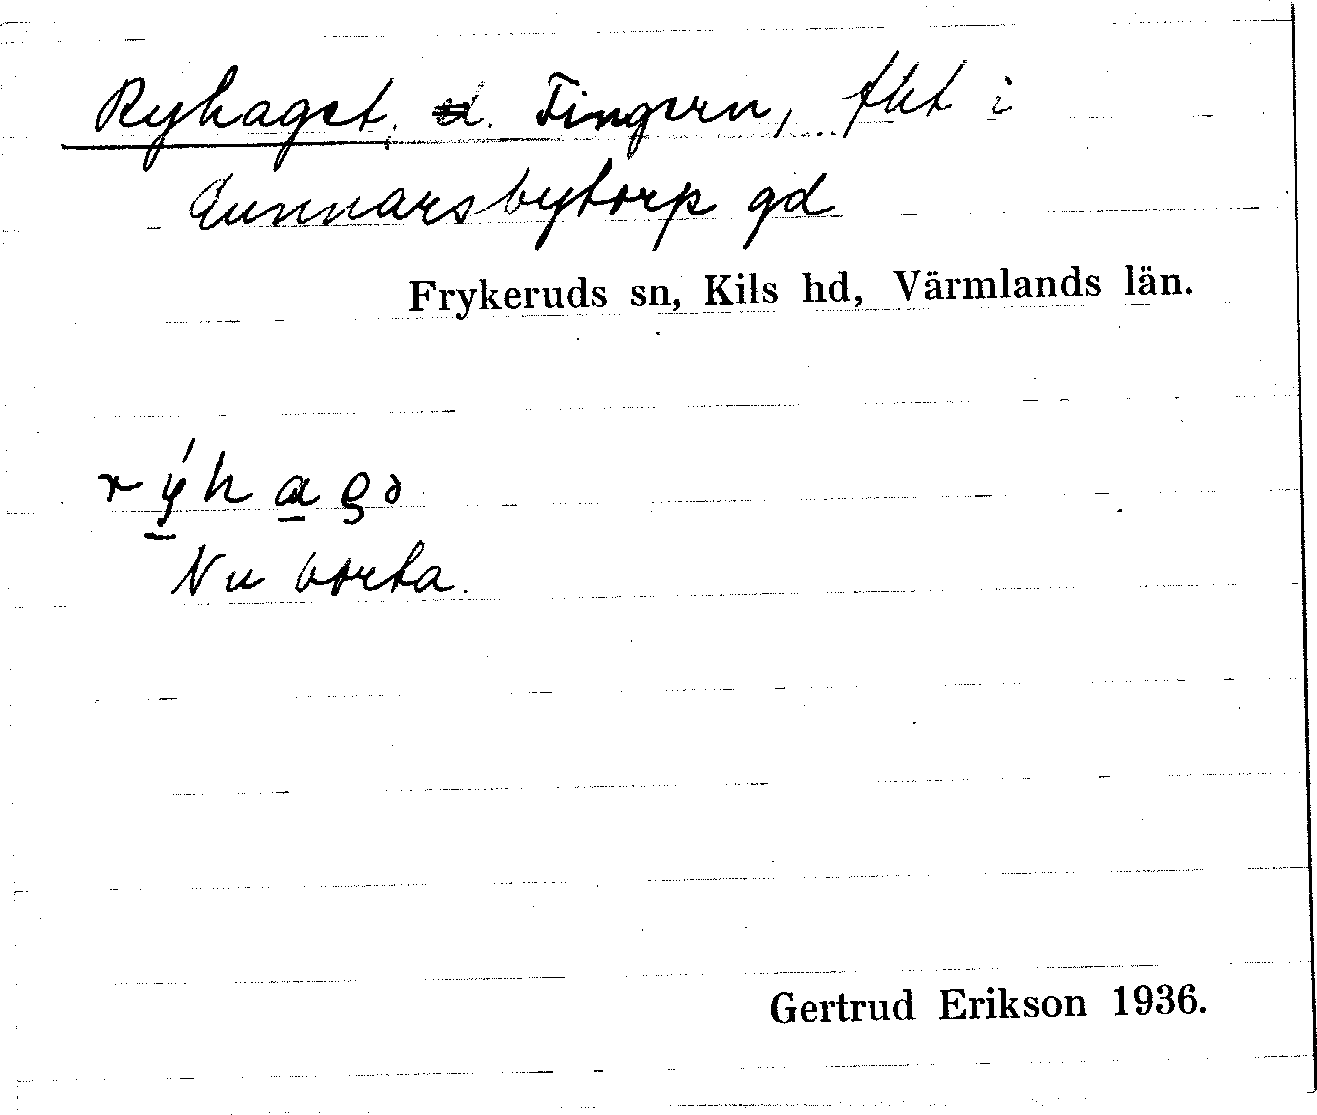 Ryhaget, d. Tingvrn, fht i
Gunnarsbytorp gd
Frykeruds sn, Kils hd, Värmlands län.
rýhagə
Nu borta.
Gertrud Erikson 1936.